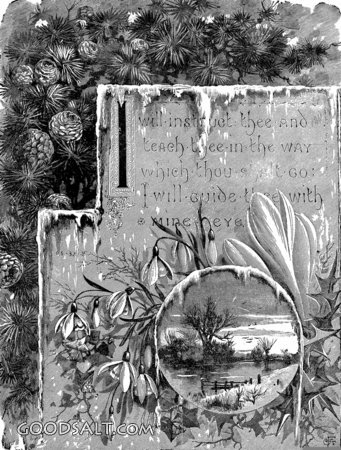 I
will instruct thee and
teach thee in the way
which thou shalt go:
I will guide thee with
mine eye.
GOODSALT.COM